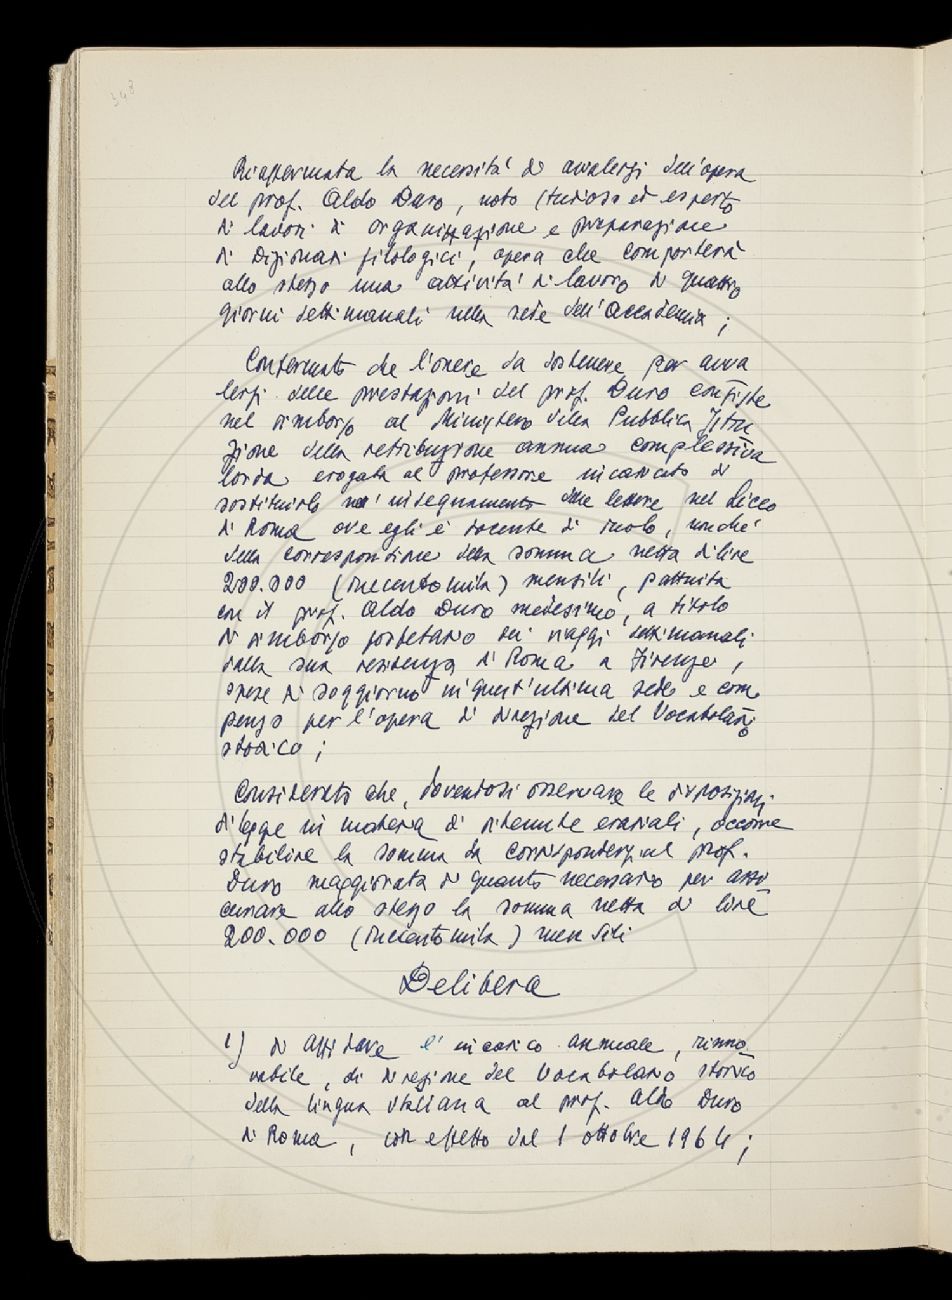 348
Riaffermata la necessità di avvalersi dell'opera
del prof. Aldo Duro, noto studioso ed esperto
di lavori di organizzazione e preparazione
di Dizionari filologici, opera che comporterà
allo stesso una attività di lavoro di quattro
giorni settimanali nella sede dell'Accademia;
Confermato che l'onere da sostenere per avva
lersi delle prestazioni del prof. Duro consiste
nel rimborso al Ministero della Pubblica Istru
zione della retribuzione annua complessiva
lorda erogata al professore incaricato di
sostituirlo nell'insegnamento delle lettere nel Liceo
di Roma ove egli è docente di ruolo, nonché
della corresponsione della somma netta di lire
200.000 (duecentomila) mensili, pattuita
con il prof. Aldo Duro medesimo, a titolo
di rimborso forfetario dei viaggi settimanali
dalla sua residenza di Roma a Firenze,
spese di soggiorno in quest'ultima sede e com
penso per l'opera di direzione del Vocabolario
storico;
Considerato che, dovendosi osservare le disposizioni
di legge in materia di ritenute erariali, occorre
stabilire la somma da corrispondersi al prof.
Duro maggiorata di quanto necessario per assi
curare allo stesso la somma netta di lire
200.000 (duecentomila) mensili
Delibera
1) di affidare l'incarico annuale, rinno
vabile, di direzione del Vocabolario storico
della lingua italiana al prof. Aldo Duro
di Roma, con effetto dal 1 ottobre 1964;